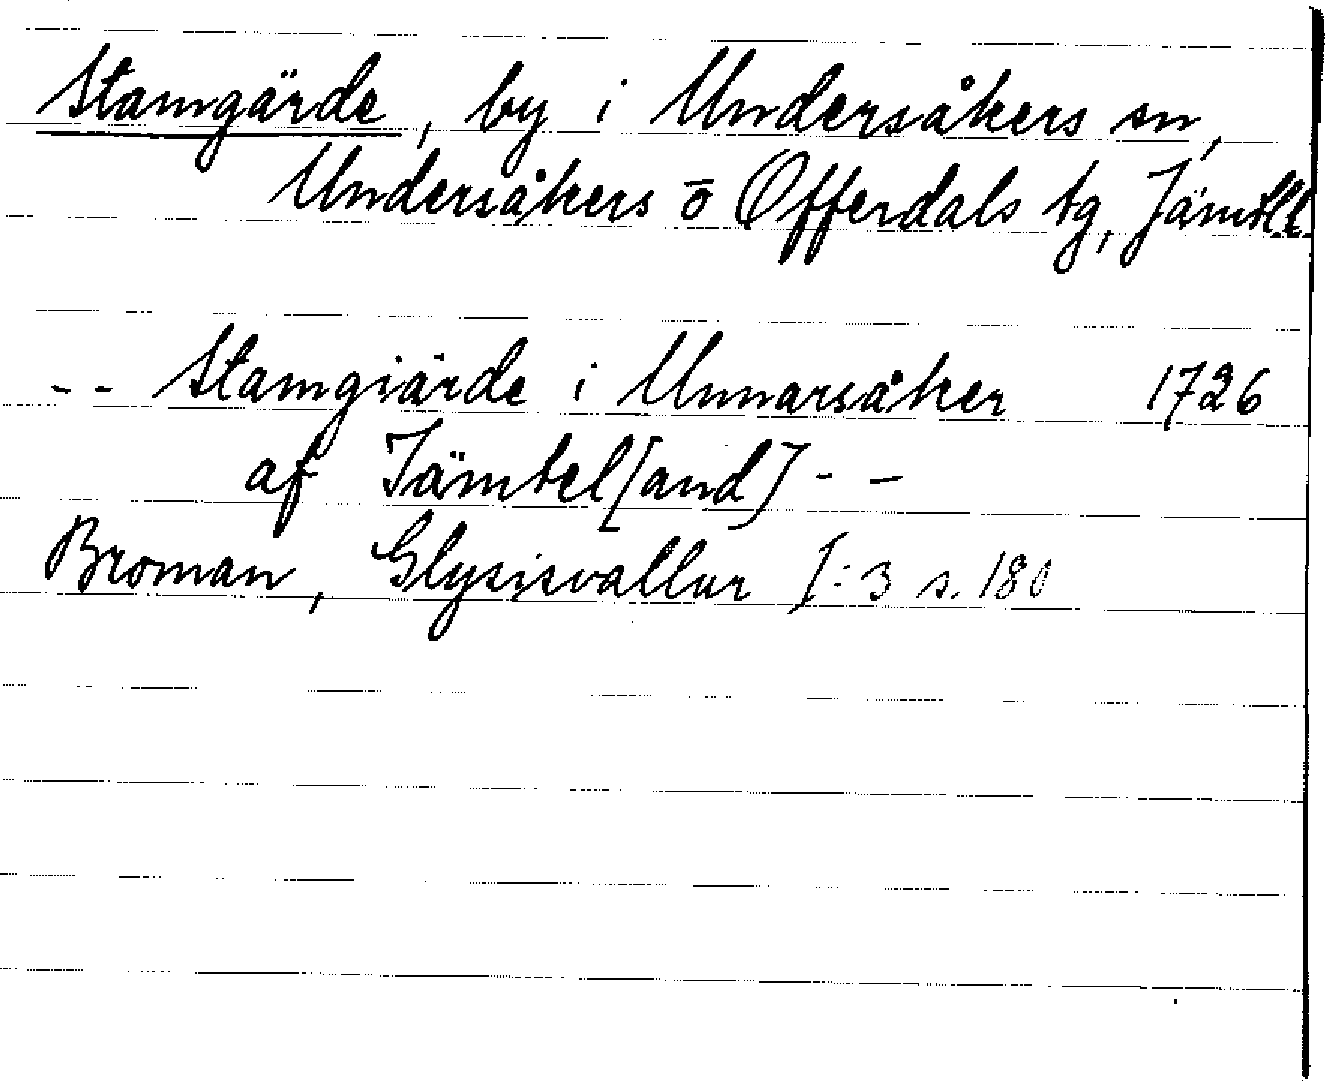 Stamgärde, by i Undersåkers sn,
Undersåkers o Offerdals tg, Jämtl.l.
-- Stamgiärde i Unnarsåker 1726
af Jämtel[and] - -
Broman, Glysisvallur I:3 s. 180